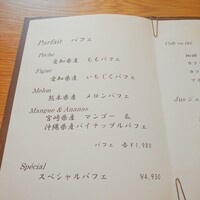 Parfait パフェ
Pêche
愛知県産 ももパフェ
Figue
愛知県産 いちじくパフェ
Melon
熊本県産 メロンパフェ
Mangue & Ananas
宮崎県産 マンゴー &
沖縄県産パイナップルパフェ
パフェ 各¥1,980
Spécial
スペシャルパフェ ¥4,950
Café ou thé
Jus